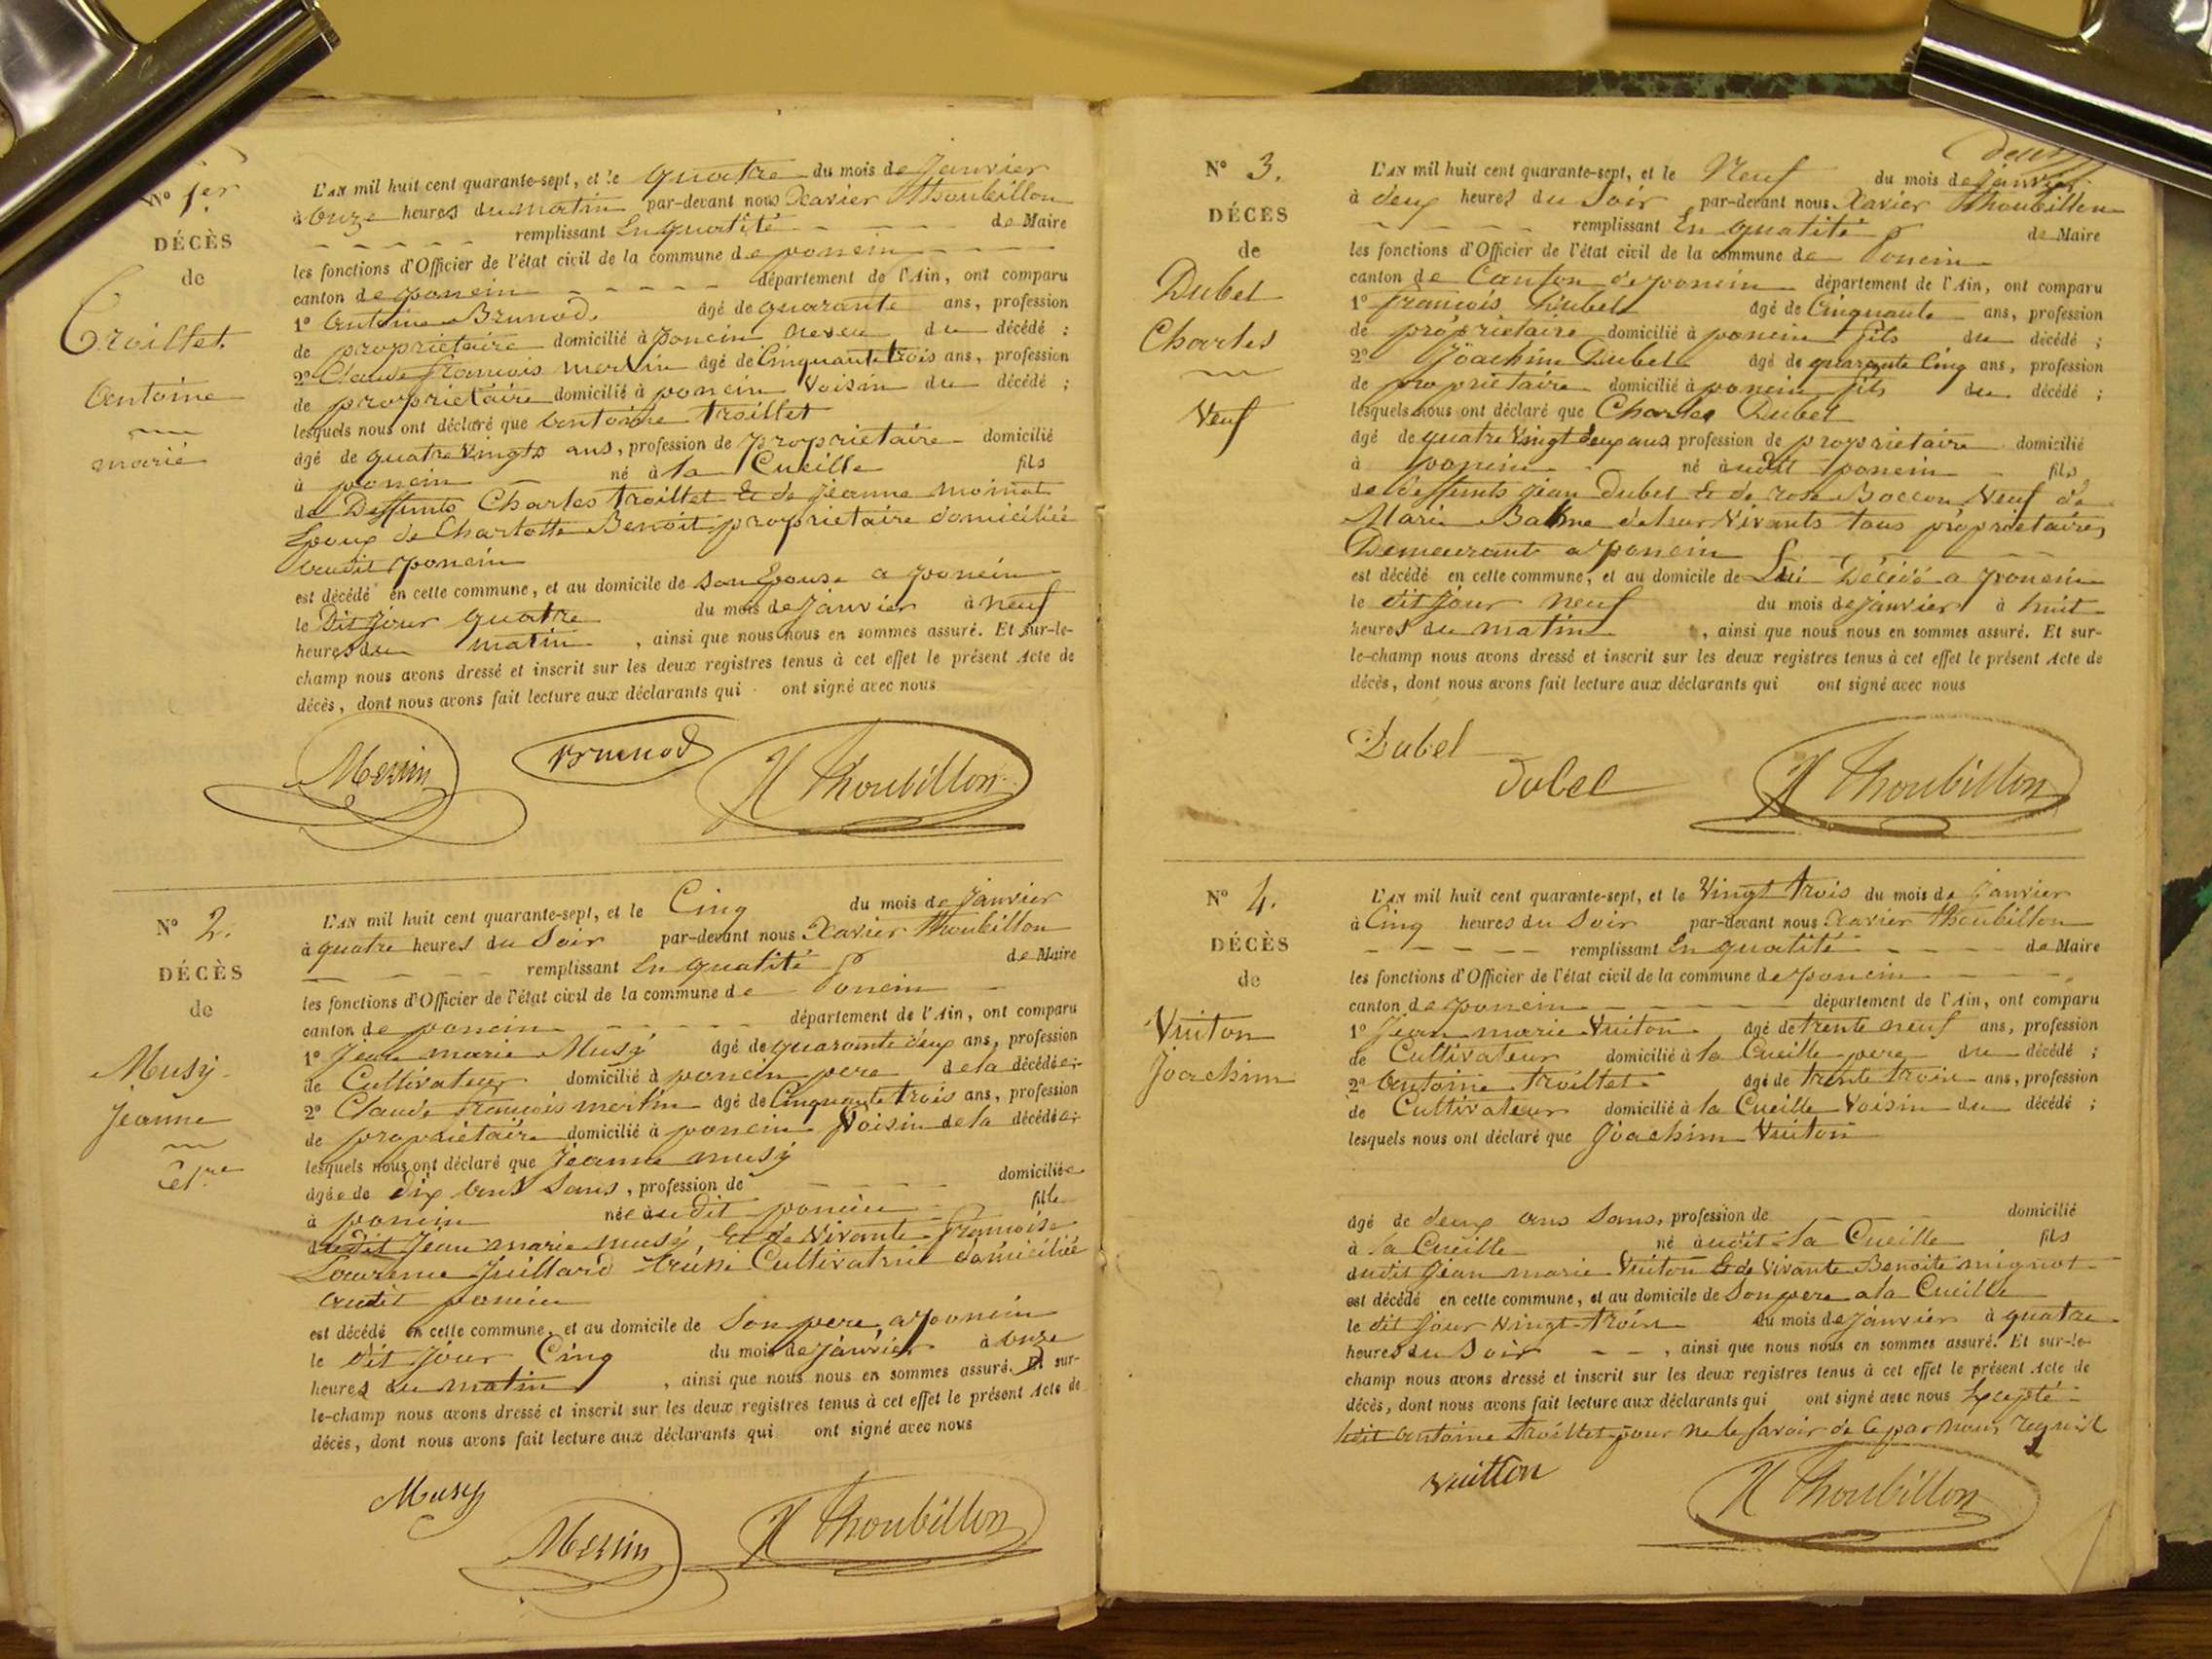 N° 1er
DÉCÈS
de
Troillet
Antoine
marié
L'AN mil huit cent quarante-sept, et le quatre du mois de Janvier
à Onze heures du matin par-devant nous Xavier Thoubillon
remplissant En qualité de Maire
les fonctions d'Officier de l'état civil de la commune de poncin
canton de poncin département de l'Ain, ont comparu
1° Antoine Brunod. âgé de quarante ans, profession
de propriétaire domicilié à poncin neveu du décédé ;
2° Claude françois merlin âgé de Cinquante trois ans, profession
de propriétaire domicilié à poncin Voisin du décédé ;
lesquels nous ont déclaré que Antoine troillet
âgé de quatre Vingts ans, profession de propriétaire domicilié
à poncin né à la Cueille fils
de Deffunts Charles troillet Et de jeanne moinat
Epoux de Charlotte Benoit propriétaire domiciliée
Audit poncin
est décédé en cette commune, et au domicile de son Epouse a poncin
le Dit jour quatre du mois de janvier à neuf
heures du matin, ainsi que nous nous en sommes assuré. Et sur-le-
champ nous avons dressé et inscrit sur les deux registres tenus à cet effet le présent Acte de
décès, dont nous avons fait lecture aux déclarants qui ont signé avec nous
Merlin Brunod X Thoubillon
N° 2.
DÉCÈS
de
Musy
Jeanne
Cel.re
L'AN mil huit cent quarante-sept, et le Cinq du mois de Janvier
à quatre heures du Soir par-devant nous Xavier Thoubillon
remplissant En qualité de Maire
les fonctions d'Officier de l'état civil de la commune de Poncin
canton de poncin département de l'Ain, ont comparu
1° Jean marie Musy âgé de quarante deux ans, profession
de Cultivateur domicilié à poncin pere de la décédée ;
2° Claude françois merlin âgé de Cinquante trois ans, profession
de propriétaire domicilié à poncin Voisin de la décédée ;
lesquels nous ont déclaré que Jeanne musy
âgée de dix Ans Sans, profession de domiciliée
à poncin née audit poncin fille
dudit Jean marie musy, Et de Vivante françoise
Laurence Juillard Cultivatrice domiciliée
Audit poncin
est décédé en cette commune, et au domicile de Son pere a poncin
le dit jour Cinq du mois de janvier à Onze
heures du matin, ainsi que nous nous en sommes assuré. Et sur-
le-champ nous avons dressé et inscrit sur les deux registres tenus à cet effet le présent Acte de
décès, dont nous avons fait lecture aux déclarants qui ont signé avec nous
Musy
Merlin X Thoubillon
deux
N° 3.
DÉCÈS
de
Dubel
Charles
Veuf
L'AN mil huit cent quarante-sept, et le Neuf du mois de janvier
à deux heures du Soir par-devant nous Xavier Thoubillon
remplissant En qualité de Maire
les fonctions d'Officier de l'état civil de la commune de Poncin
canton de Canton de poncin département de l'Ain, ont comparu
1° françois Dubel âgé de Cinquante ans, profession
de propriétaire domicilié à poncin fils du décédé ;
2° Joachim Dubel âgé de quarante Cinq ans, profession
de propriétaire domicilié à poncin fils du décédé ;
lesquels nous ont déclaré que Charles Dubel
âgé de quatre Vingt deux ans profession de propriétaire domicilié
à poncin né audit poncin fils
de deffunts jean Dubel Et de rose Boccon Veuf de
Marie Balme de leur Vivants tous propriétaires
Demeurants a poncin
est décédé en cette commune, et au domicile de Lui Décédé a poncin
le dit jour neuf du mois de janvier à huit
heures du matin, ainsi que nous nous en sommes assuré. Et sur-
le-champ nous avons dressé et inscrit sur les deux registres tenus à cet effet le présent Acte de
décès, dont nous avons fait lecture aux déclarants qui ont signé avec nous
Dubel
Dubel X Thoubillon
N° 4.
DÉCÈS
de
Vuiton
Joachim
L'AN mil huit cent quarante-sept, et le Vingt trois du mois de janvier
à Cinq heures du Soir par-devant nous Xavier Thoubillon
remplissant En qualité de Maire
les fonctions d'Officier de l'état civil de la commune de poncin
canton de poncin département de l'Ain, ont comparu
1° Jean marie Vuiton âgé de trente neuf ans, profession
de Cultivateur domicilié à la Cueille pere du décédé ;
2° Antoine troillet âgé de trente trois ans, profession
de Cultivateur domicilié à la Cueille Voisin du décédé ;
lesquels nous ont déclaré que Joachim Vuiton
âgé de deux ans Sans, profession de domicilié
à la Cueille né audit la Cueille fils
dudit Jean marie Vuiton Et de Vivante Benoite mignot
est décédé en cette commune, et au domicile de Son pere a la Cueille
le dit jour Vingt-trois du mois de janvier à quatre
heures du Soir, ainsi que nous nous en sommes assuré. Et sur-le-
champ nous avons dressé et inscrit sur les deux registres tenus à cet effet le présent Acte de
décès, dont nous avons fait lecture aux déclarants qui ont signé avec nous Excepté
ledit Antoine troillet pour ne le savoir de ce par nous requit
Vuitton X Thoubillon